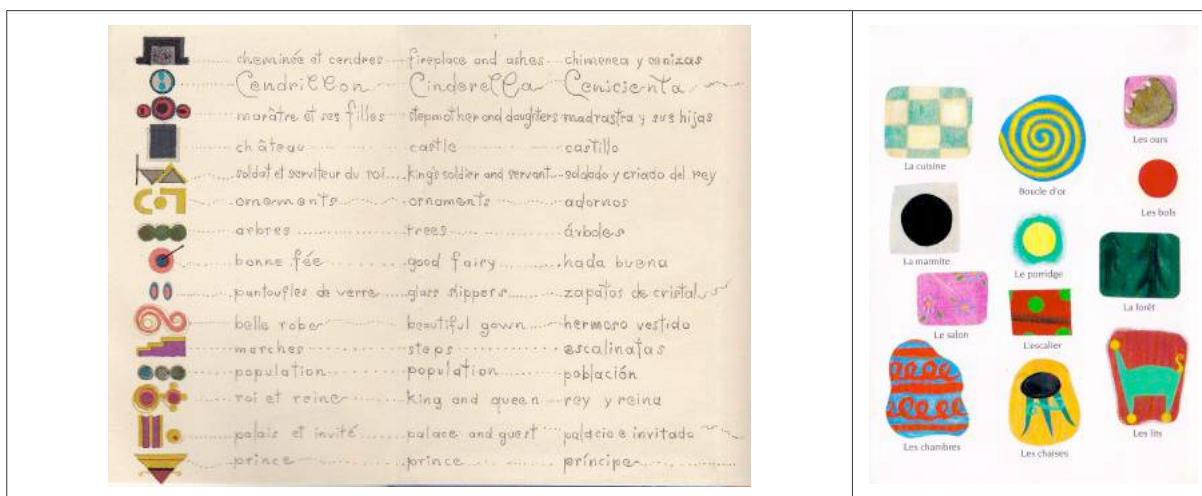 cheminée et cendres fireplace and ashes chimenea y cenizas
Cendrillon Cinderella Cenicienta
marâtre et ses filles stepmother and daughters madrastra y sus hijas
château castle castillo
soldat et serviteur du roi king's soldier and servant soldado y criado del rey
ornements ornaments adornos
arbres trees árboles
bonne fée good fairy hada buena
pantoufles de verre glass slippers zapatos de cristal
belle robe beautiful gown hermoso vestido
marches steps escalinatas
population population población
roi et reine king and queen rey y reina
palais et invité palace and guest palacio e invitado
prince prince príncipe
Les ours
La cuisine
Boucle d'or
Les bols
La marmite
Le porridge
La forêt
Le salon
L'escalier
Les lits
Les chambres
Les chaises